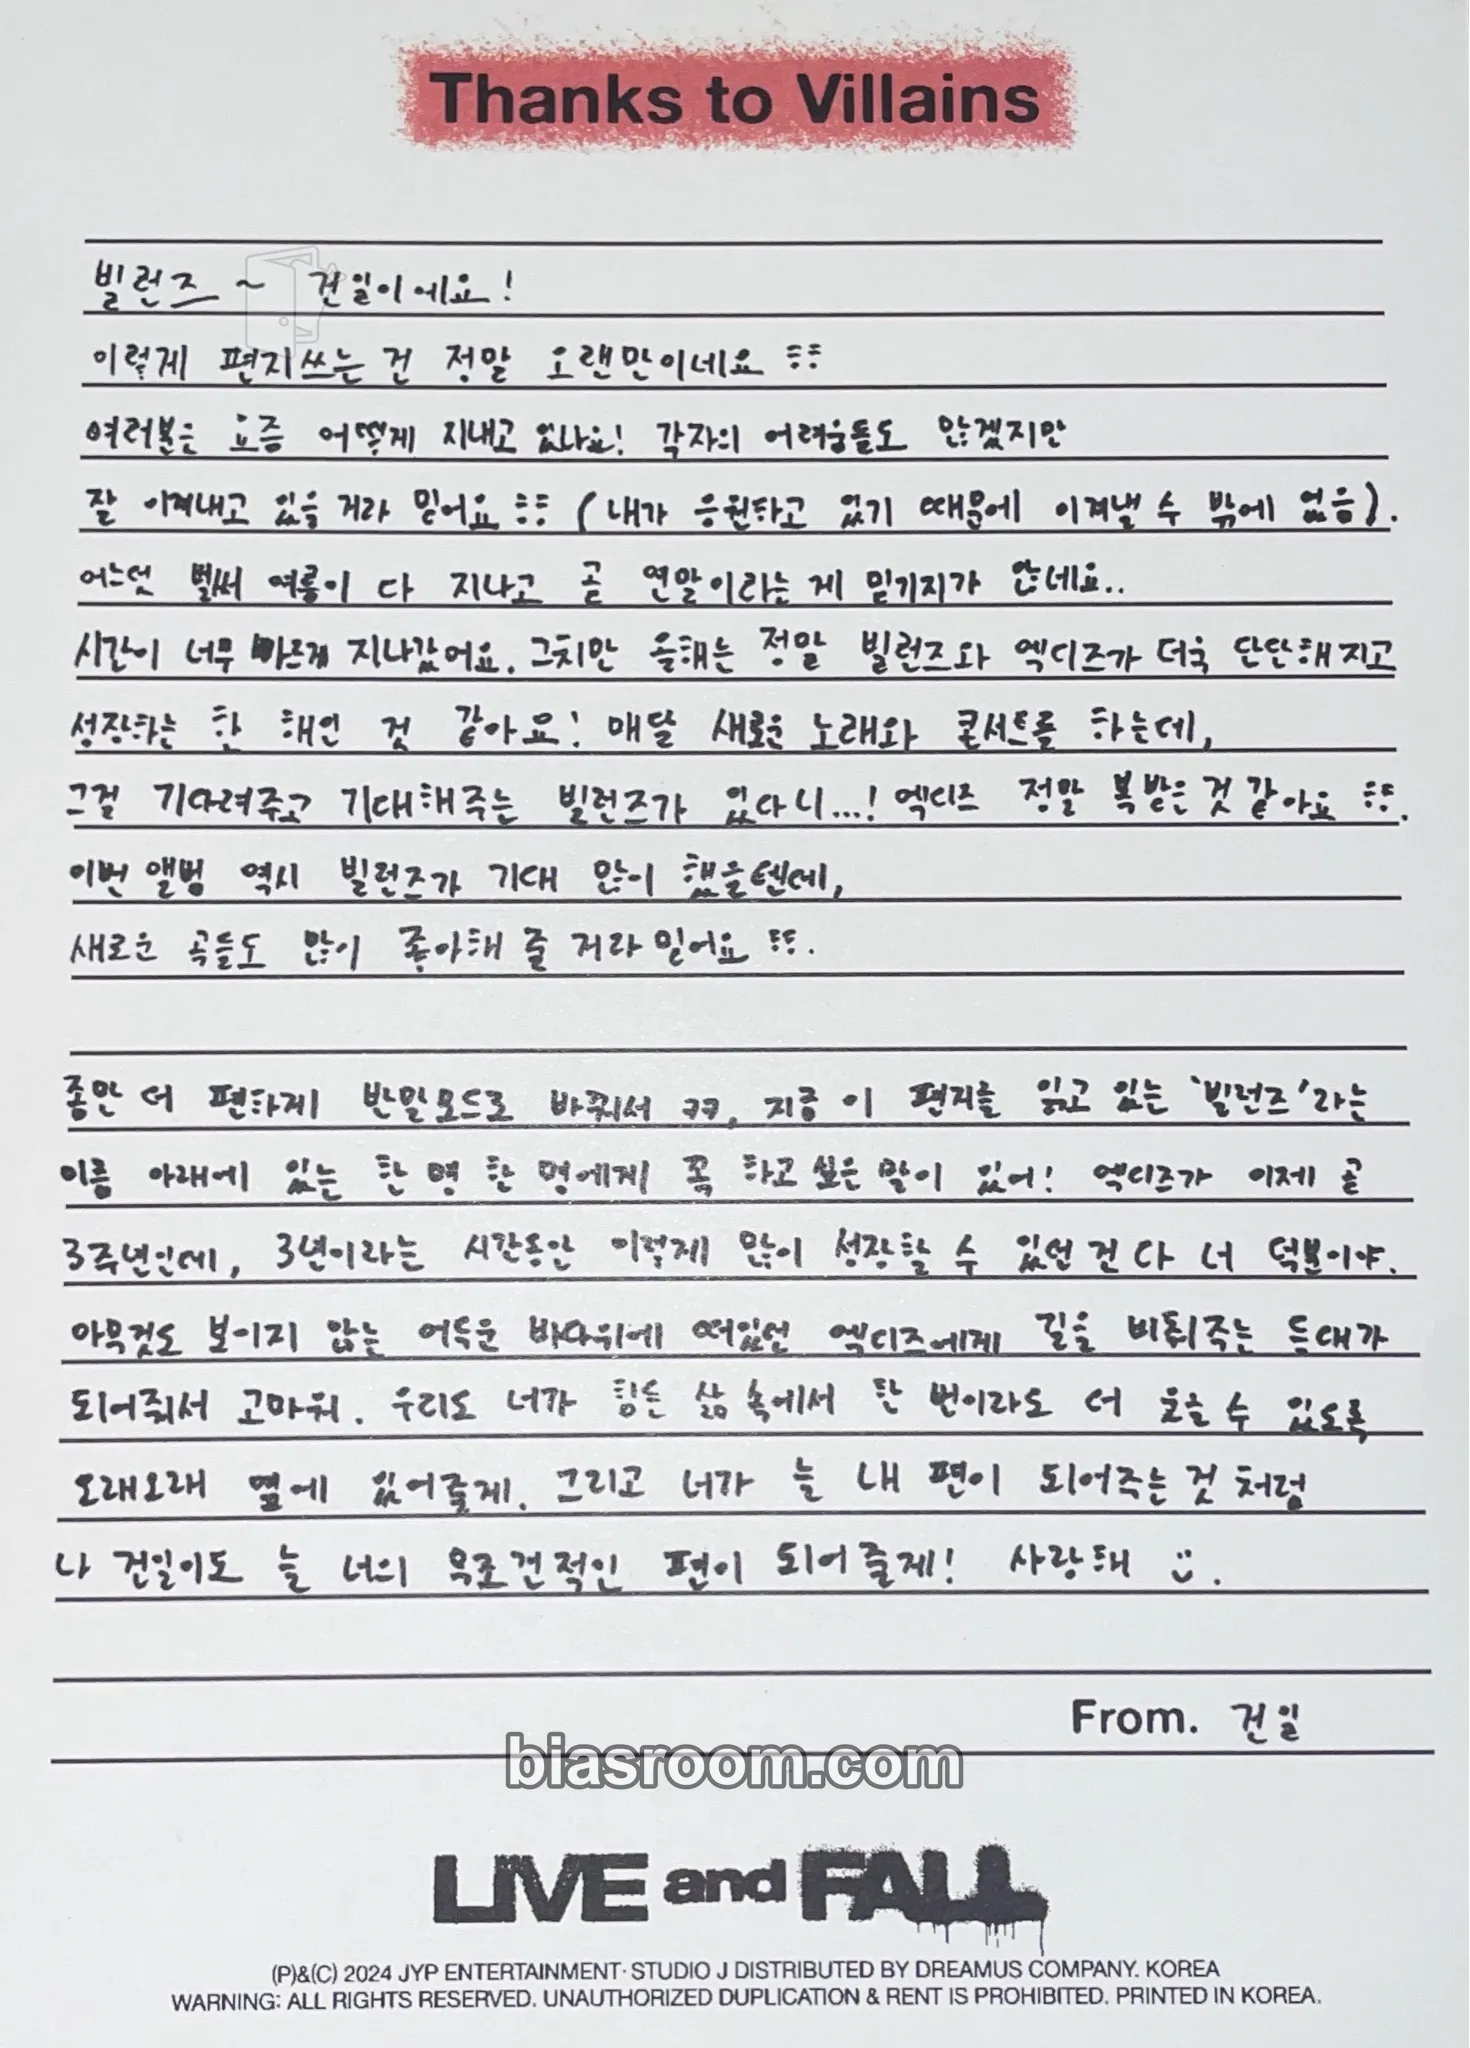 Thanks to Villains
빌런즈 ~ 건일이에요!
이렇게 편지쓰는 건 정말 오랜만이네요 ㅎㅎ
여러분은 요즘 어떻게 지내고 있나요! 각자의 어려움들도 많겠지만
잘 이겨내고 있을 거라 믿어요 ㅎㅎ (내가 응원하고 있기 때문에 이겨낼 수 밖에 없음).
어느덧 벌써 여름이 다 지나고 곧 연말이라는 게 믿기지가 않네요..
시간이 너무 빠르게 지나갔어요. 그치만 올해는 정말 빌런즈와 엑디즈가 더욱 단단해지고
성장하는 한 해인 것 같아요! 매달 새로운 노래와 콘서트를 하는데,
그걸 기다려주고 기대해주는 빌런즈가 있다니...! 엑디즈 정말 복받은 것 같아요 ㅎㅎ.
이번 앨범 역시 빌런즈가 기대 많이 했을텐데,
새로운 곡들도 많이 좋아해 줄 거라 믿어요 ㅎㅎ.
좀만 더 편하게 반말모드로 바꿔서 ㅋㅋ, 지금 이 편지를 읽고 있는 '빌런즈'라는
이름 아래에 있는 한 명 한 명에게 꼭 하고 싶은 말이 있어! 엑디즈가 이제 곧
3주년인데, 3년이라는 시간동안 이렇게 많이 성장할 수 있었던건 다 너 덕분이야.
아무것도 보이지 않는 어두운 바다위에 떠있던 엑디즈에게 길을 비춰주는 등대가
되어줘서 고마워. 우리도 너가 힘든 삶 속에서 한 번이라도 더 웃을 수 있도록
오래오래 옆에 있어줄게. 그리고 너가 늘 내 편이 되어주는 것 처럼
나 건일이도 늘 너의 무조건적인 편이 되어줄게! 사랑해 :).
From. 건일
biasroom.com
LIVE and FALL
(P)&(C) 2024 JYP ENTERTAINMENT· STUDIO J DISTRIBUTED BY DREAMUS COMPANY. KOREA
WARNING: ALL RIGHTS RESERVED. UNAUTHORIZED DUPLICATION & RENT IS PROHIBITED. PRINTED IN KOREA.